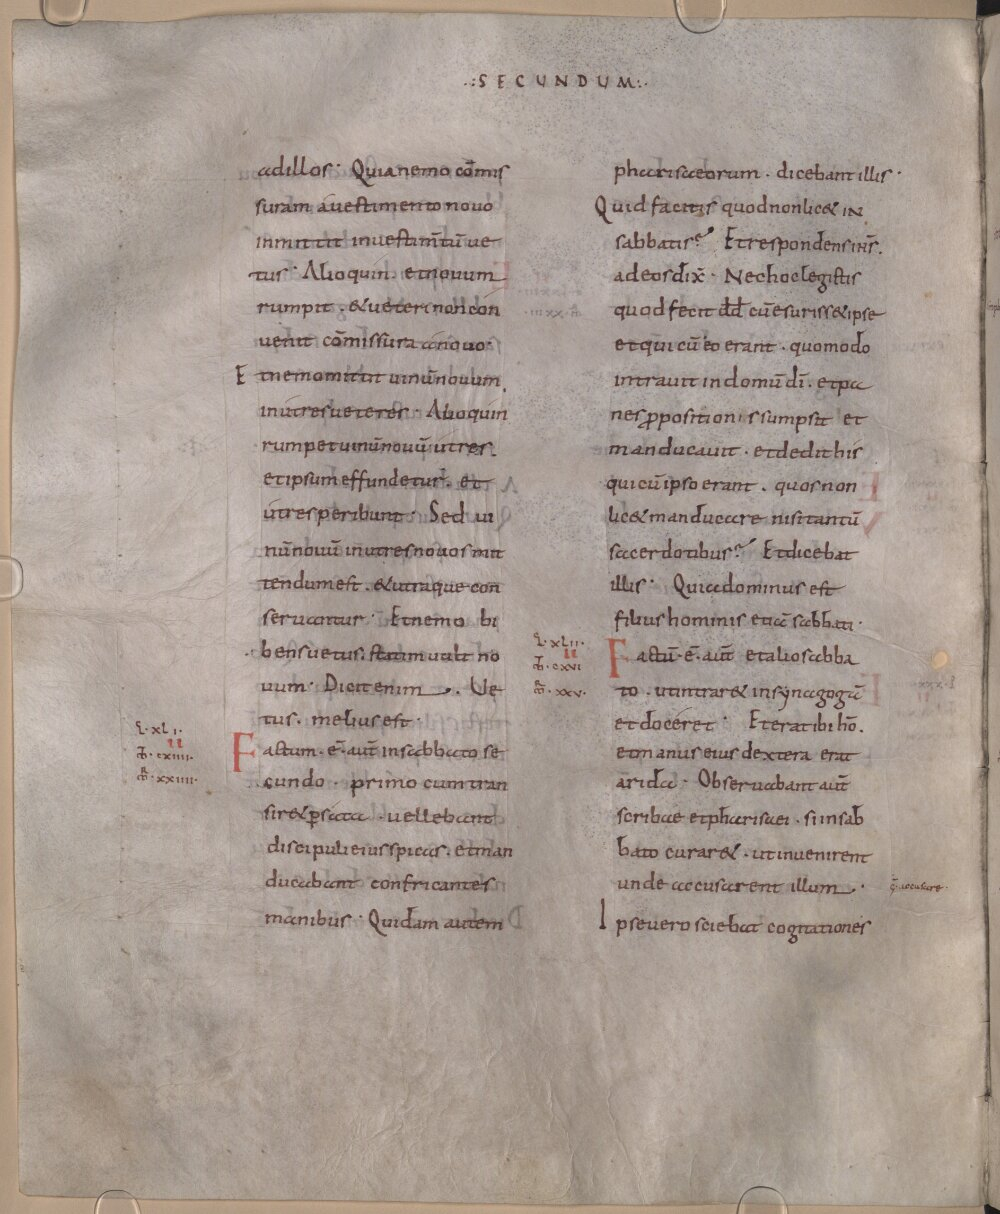 .:SECUNDUM:.
adillos· Quianemo cōmis
suram auestimento nouo
inmittit inuestimtū ue
tus· Alioquin etnouum
rumpit . &ueterinoncon
uenit cōmissura anouo·
Etnemomittit uinūnouum
inutresueteres· Alioquin
rumpetuinūnouū utres.
etipsumeffundetur. et
utresperibunt· Sed ui
nūnouū inutresnouosmit
tendumest. &utraquecon
seruantur· Etnemo bi
bensuetus. statimuult no
uum· Dicitenim . Ue
tus. meliusest·
L·xli·
ii
Io·cxiiii·
M·xxiiii·
Factum·ē·aut̄ insabbato se
cundo · primo cumtran
sir&psata · uellebant
discipulieiusspicas. etman
ducabant confricantes
manibus· Quidam autem
pharisaeorum · dicebantillis·
Quidfacitis quodnonlic& in
sabbatis? Etrespondensihs̄.
adeosdix̄· Nechoclegistis
quodfecit dd̄ cūesuriss&ipse
etquicūeo erant · quomodo
intrauit indomū dī. etpa
nesppositionissumpsit et
manducauit · etdedithis
quicūipsoerant . quosnon
lic&manducare nisitantū
sacerdotibus? Etdicebat
illis· Quiadominusest
filiushominis etiā sabbati·
L·xlii·
ii
Io·cxvi
M·xxv·
Factū·ē·aut̄ etaliosabba
to . utintrar& insynagogā
etdoceret· Eteratibihō.
etmanuseius dextera erat
arida· Obseruabantaut̄
scribae etpharisaei · siinsab
bato curar& · utinuenirent
unde accusarent illum ·
q̄·accusare·
Ipseuero sciebat cogitationes